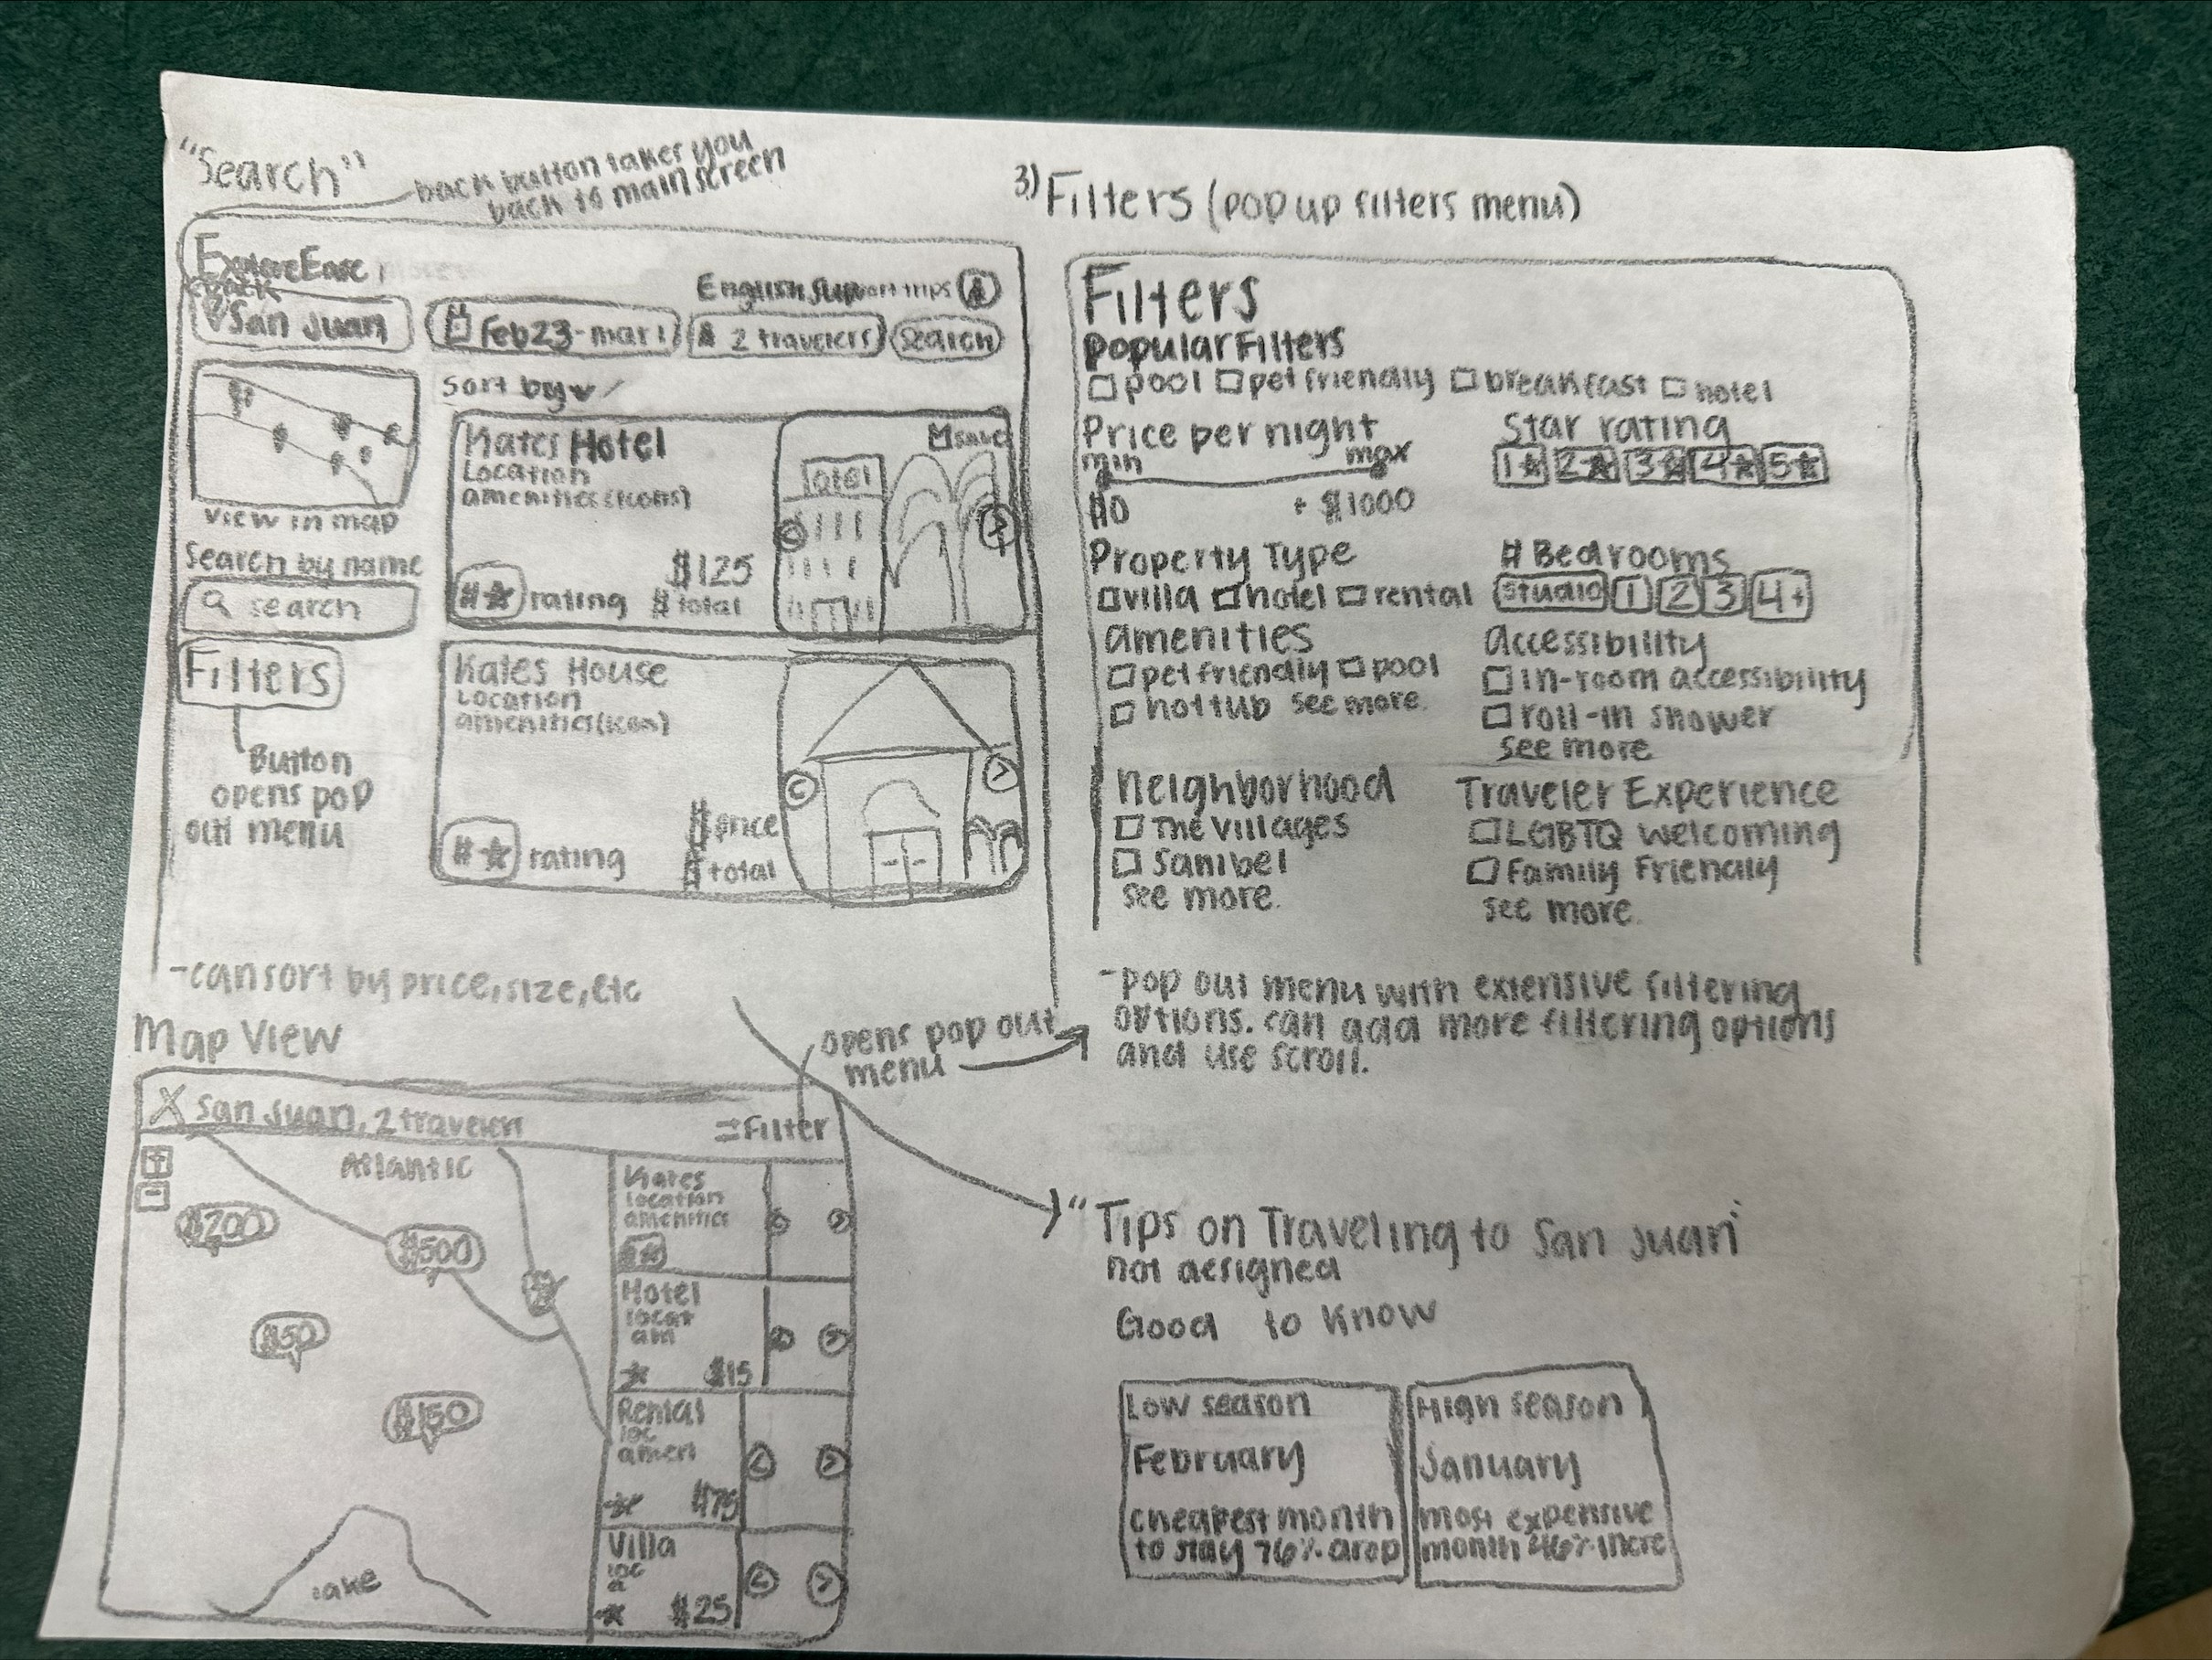 "Search"
back button takes you
back to main screen
ExploreEase
Back
English support trips
San Juan
Feb23-mar1
2 travelers
Search
view in map
Search by name
search
Filters
Button
opens pop
out menu
Sort by
Kates Hotel
Location
amenities(icons)
#★ rating
$125
$ total
save
Hotel
< >
Kates House
Location
amenities(icon)
#★ rating
$price
$ total
< >
-can sort by price, size, etc
Map View
opens pop out
menu
X San Juan, 2 travelers
Filter
+
-
Atlantic
$200
$500
$50
$150
lake
Kates
location
amenities
#★
< >
Hotel
locat
am
★ $15
< >
Rental
loc
amen
★ $75
< >
Villa
loc
a
★ $25
< >
3) Filters (pop up filters menu)
Filters
popular Filters
pool pet friendly breakfast hotel
Price per night
min max
$0 + $1000
Star rating
1★ 2★ 3★ 4★ 5★
Property Type
villa hotel rental
# Bedrooms
studio 1 2 3 4+
amenities
pet friendly pool
hot tub see more
Accessibility
in-room accessibility
roll-in shower
see more
Neighborhood
The villages
Sanibel
see more.
Traveler Experience
LGBTQ welcoming
Family Friendly
see more.
-pop out menu with extensive filtering
options. can add more filtering options
and use scroll.
"Tips on Traveling to San Juan"
not designed
Good to Know
Low season
February
cheapest month
to stay 76% drop
High season
January
most expensive
month 46% incre